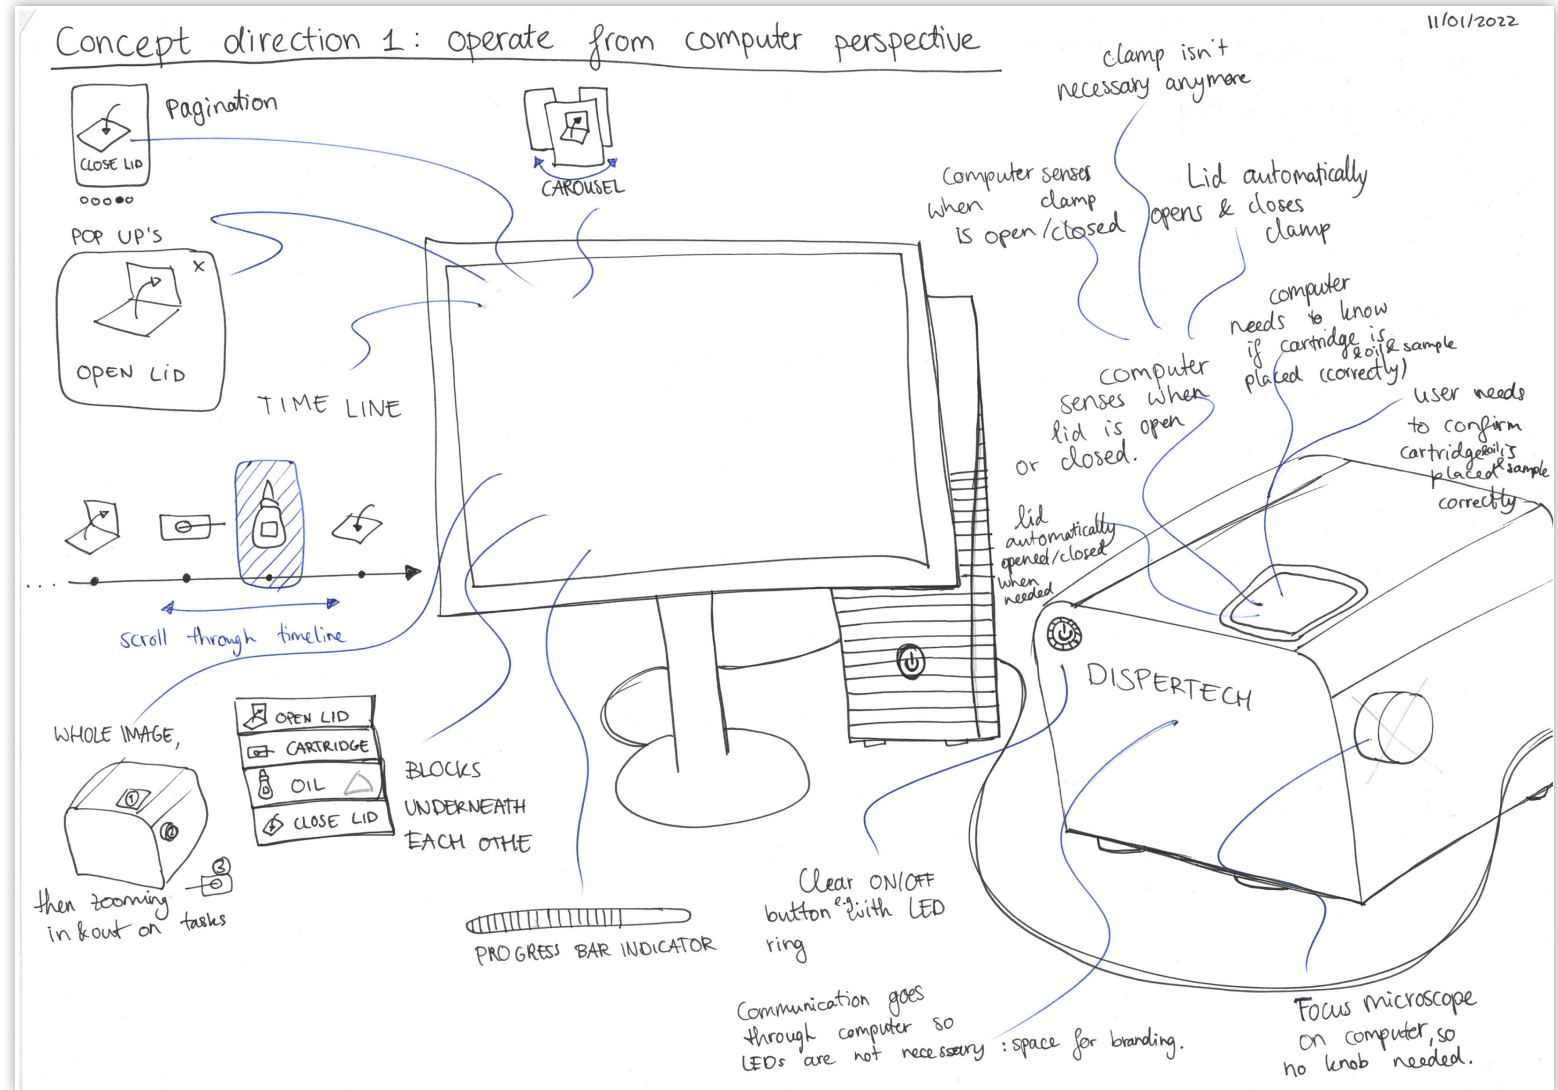 11/01/2022
Concept direction 1: operate from computer perspective
Pagination
CLOSE LID
CAROUSEL
POP UP'S
x
OPEN LID
TIME LINE
...
scroll through timeline
WHOLE IMAGE,
1
2
3
then zooming
in & out on tasks
OPEN LID
CARTRIDGE
OIL
CLOSE LID
BLOCKS
UNDERNEATH
EACH OTHE
PROGRESS BAR INDICATOR
clamp isn't
necessary anymore
Computer senses
when clamp
is open/closed
Lid automatically
opens & closes
clamp
computer
needs to know
if cartridge is
& oil & sample
placed (correctly)
computer
senses when
lid is open
or closed.
user needs
to confirm
cartridge & oil is
placed & sample
correctly
lid
automatically
opened/closed
when
needed
DISPERTECH
Clear ON/OFF
button e.g. with LED
ring
Communication goes
through computer so
LEDs are not necessary : space for branding.
Focus microscope
on computer, so
no knob needed.